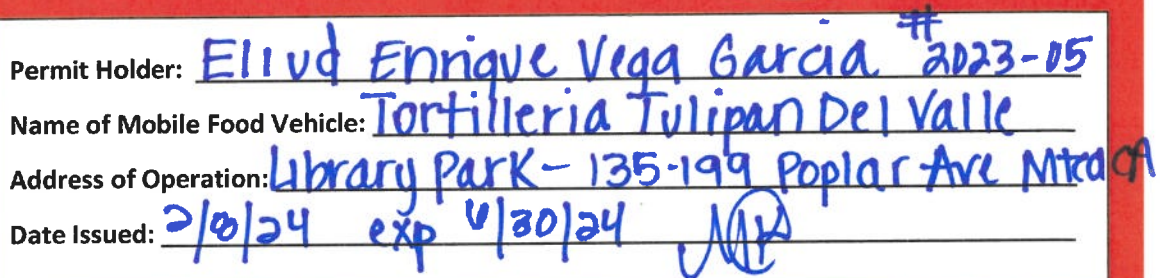 Permit Holder: Eliud Enrique Vega Garcia #2023-05
Name of Mobile Food Vehicle: Tortilleria Tulipan Del Valle
Address of Operation: Library Park - 135-199 Poplar Ave Mtca CA
Date Issued: 2/8/24 exp 6/30/24